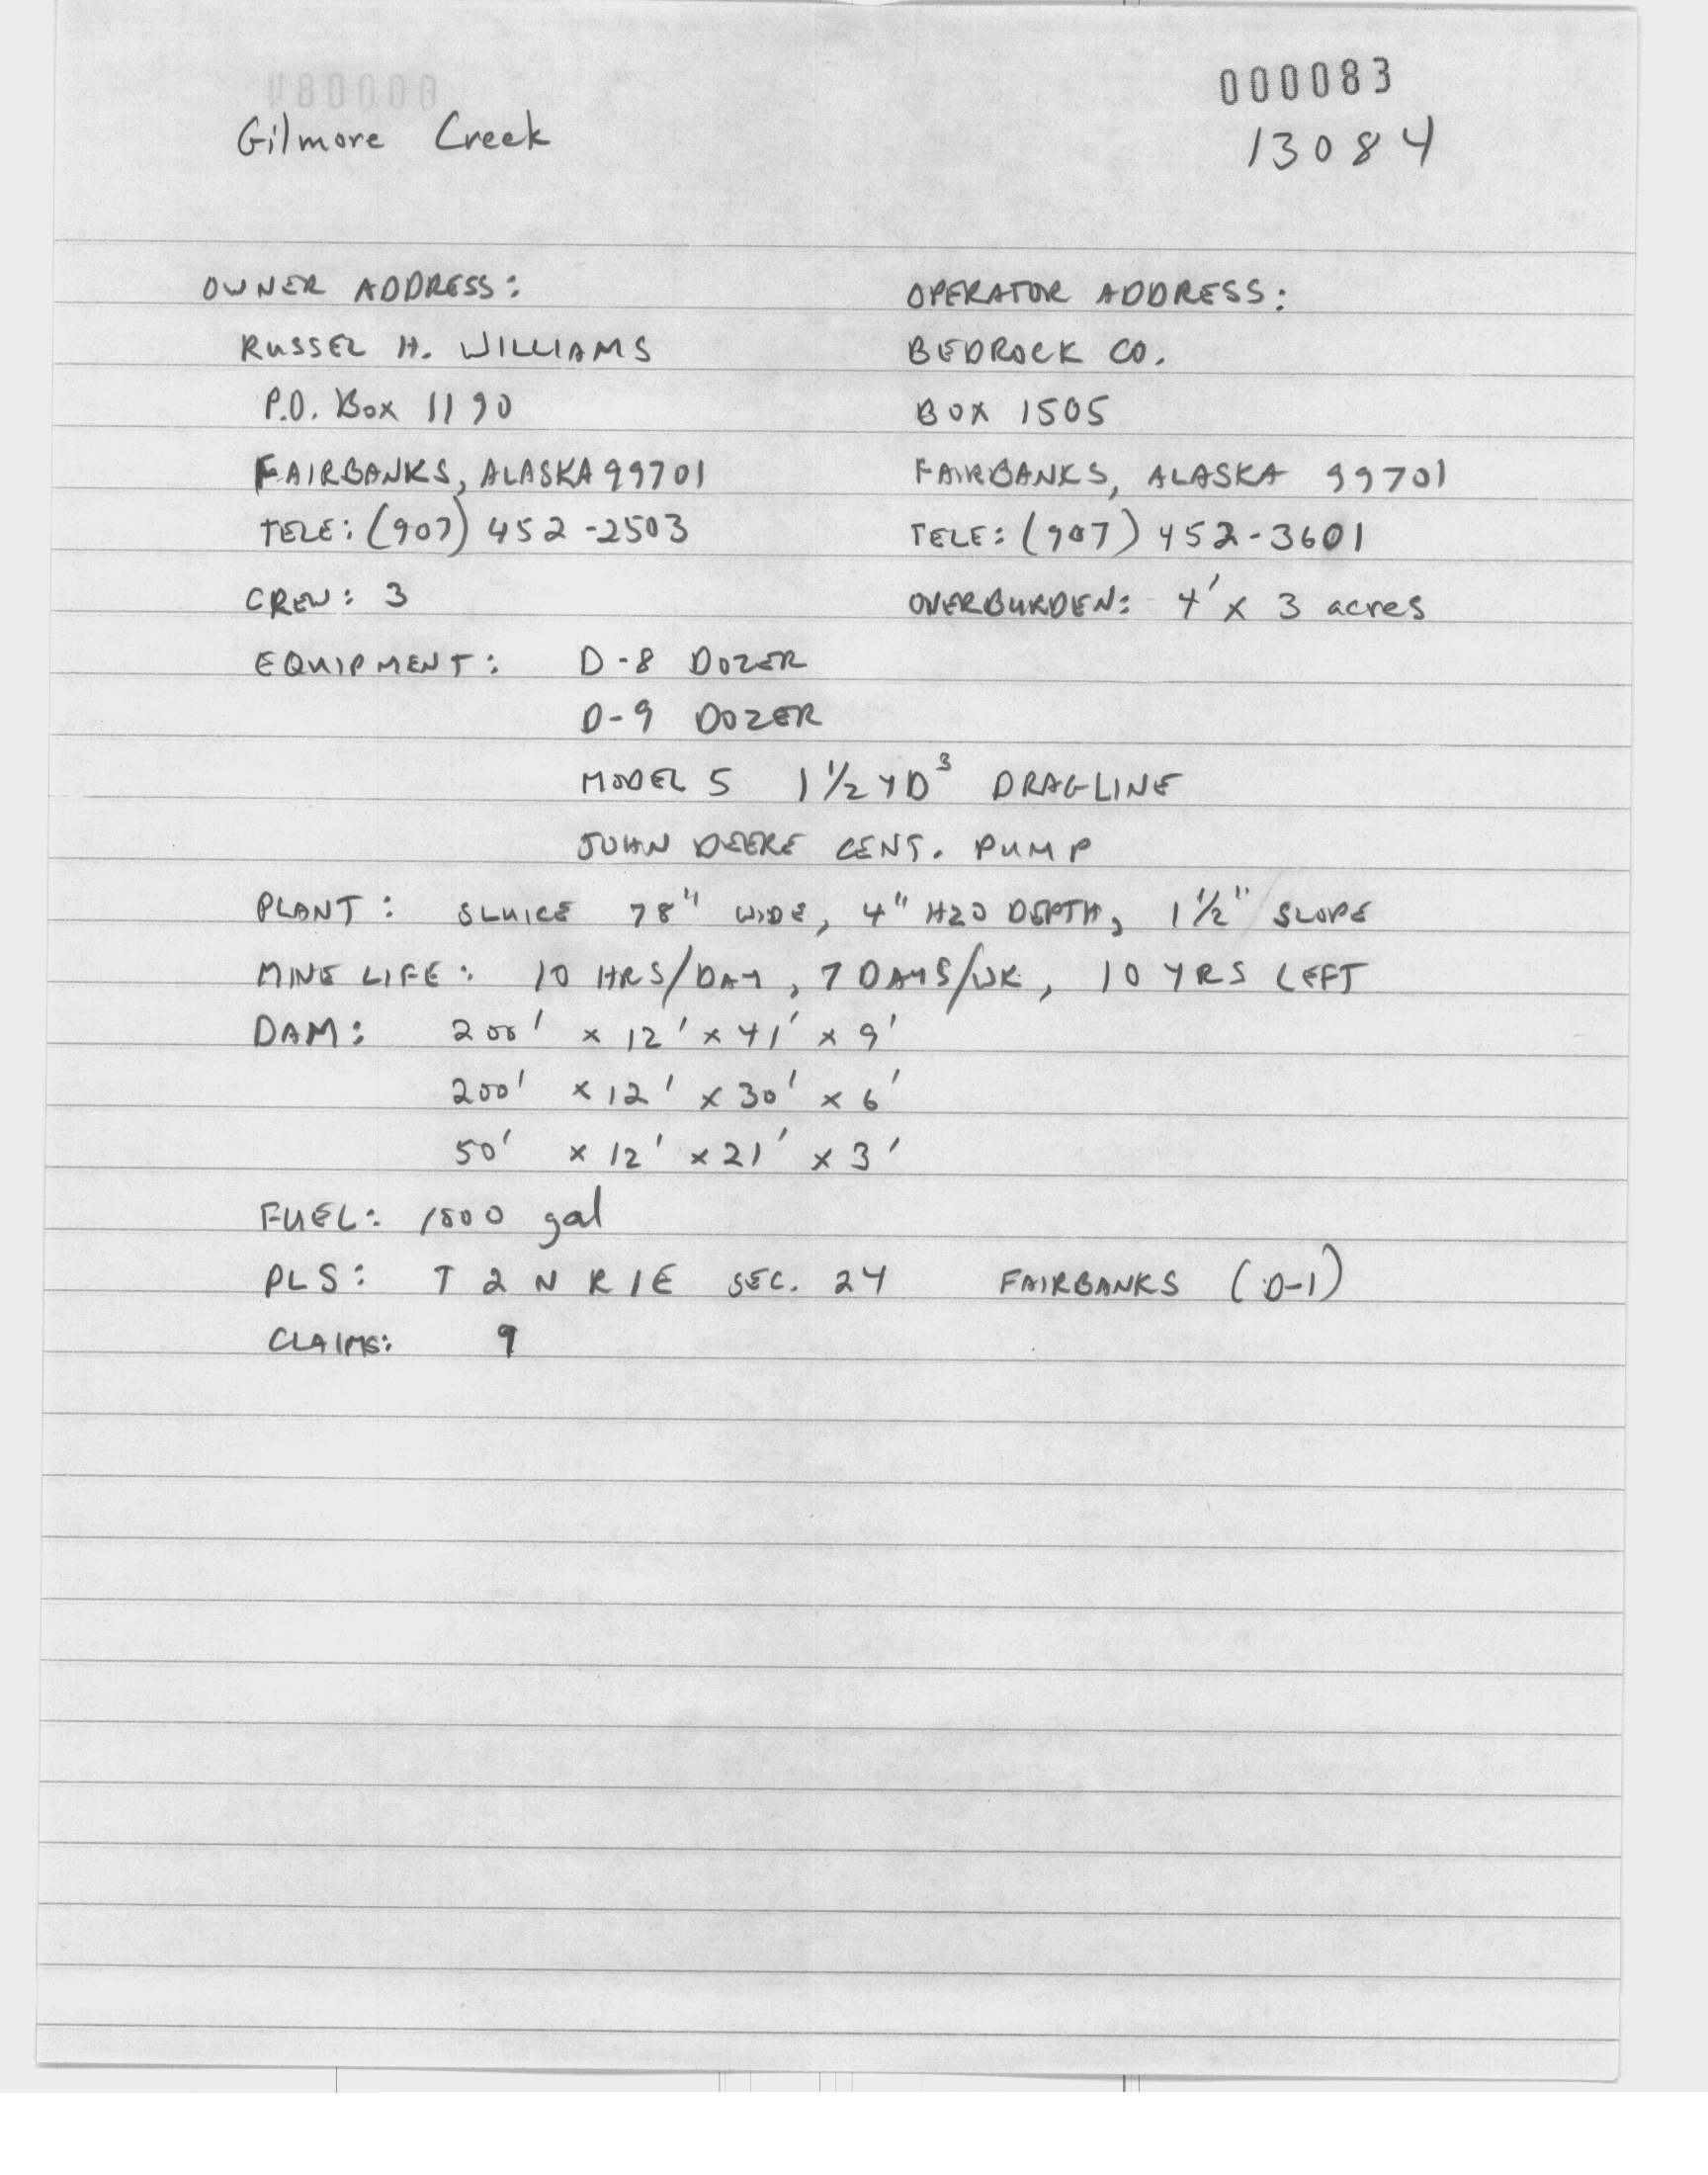 000083
Gilmore Creek
13084
OWNER ADDRESS: OPERATOR ADDRESS:
RUSSEL H. WILLIAMS BEDROCK CO.
P.O. Box 1190 BOX 1505
FAIRBANKS, ALASKA 99701 FAIRBANKS, ALASKA 99701
TELE: (907) 452-2503 TELE: (907) 452-3601
CREW: 3 OVERBURDEN: 4' x 3 acres
EQUIPMENT: D-8 DOZER
D-9 DOZER
MODEL 5 1 1/2 YD³ DRAGLINE
JOHN DEERE CENT. PUMP
PLANT: SLUICE 78" WIDE, 4" H2O DEPTH, 1 1/2" SLOPE
MINE LIFE: 10 HRS/DAY, 7 DAYS/WK, 10 YRS LEFT
DAM: 200' x 12' x 41' x 9'
200' x 12' x 30' x 6'
50' x 12' x 21' x 3'
FUEL: 1500 gal
PLS: T 2 N R 1 E SEC. 24 FAIRBANKS (D-1)
CLAIMS: 9